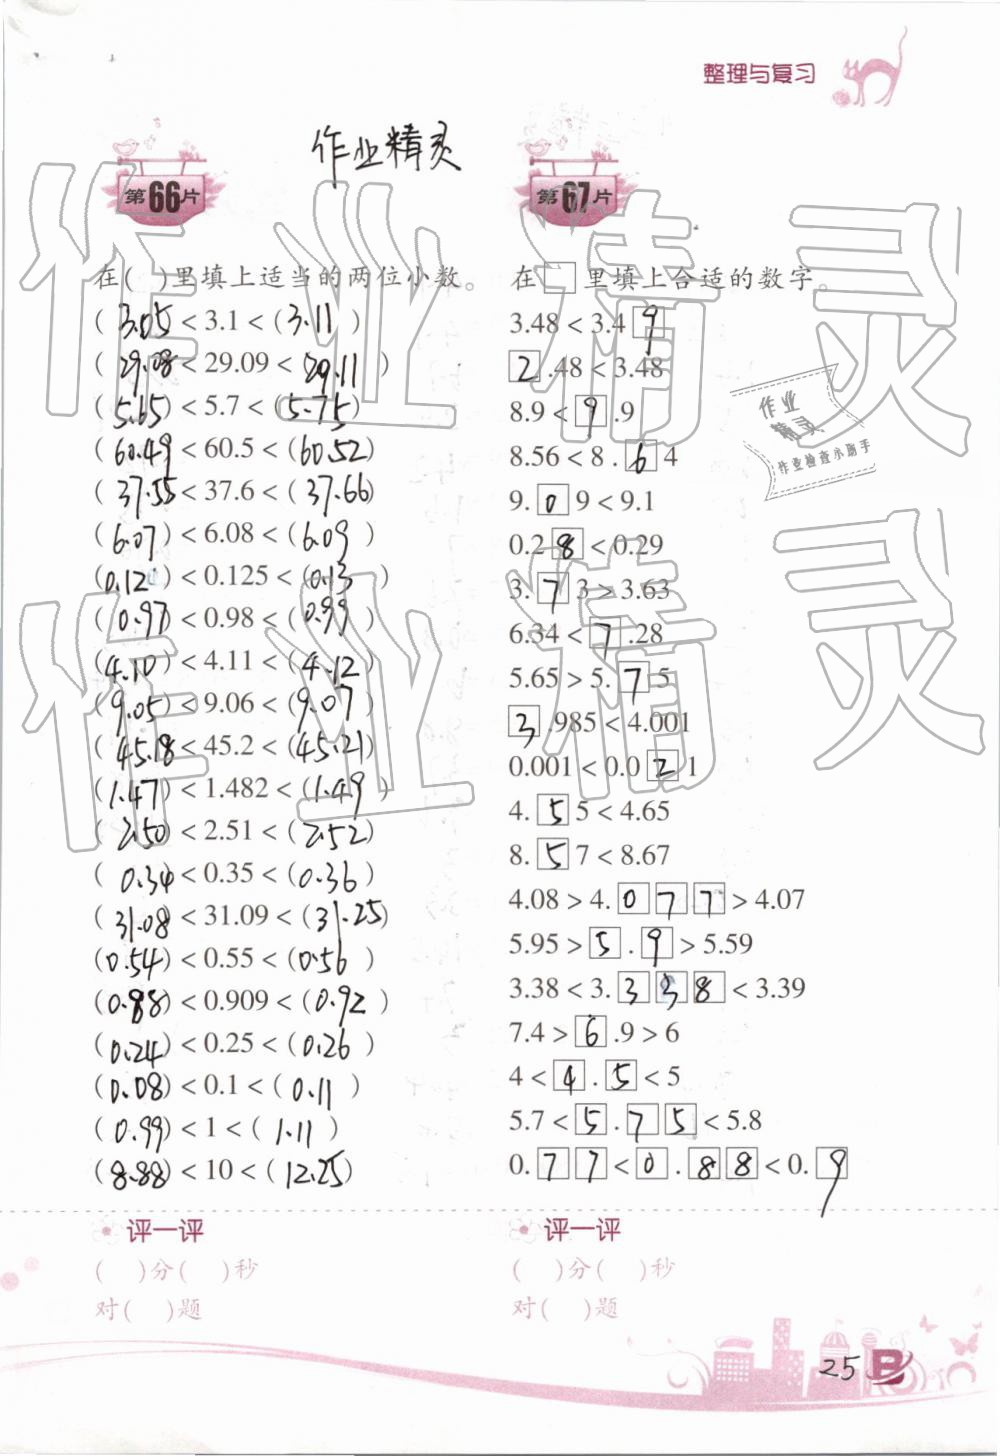 整理与复习
作业精灵
第66片
在( )里填上适当的两位小数。
( 3.05 < 3.1 < (3.11 )
( 29.08 < 29.09 < 29.11 )
(5.65) < 5.7 < (5.75)
(60.49 < 60.5 < (60.52)
( 37.55 < 37.6 < ( 37.66)
(6.07) < 6.08 < (6.09 )
(0.12 ) < 0.125 < (0.13 )
( 0.97) < 0.98 < (0.99 )
(4.10) < 4.11 < (4.12)
(9.05) < 9.06 < (9.07 )
( 45.18 < 45.2 < (45.21)
(1.47) < 1.482 < (1.49 )
( 2.50) < 2.51 < (2.52)
( 0.34 < 0.35 < (0.36 )
( 31.08 < 31.09 < (31.25)
(0.54) < 0.55 < (0.56 )
(0.88) < 0.909 < (0.92 )
(0.24) < 0.25 < (0.26 )
(0.08) < 0.1 < ( 0.11 )
( 0.99) < 1 < ( 1.11 )
(8.88) < 10 < (12.25)
评一评
( )分( )秒
对( )题
第67片
在□里填上合适的数字。
3.48 < 3.4 9
2 .48 < 3.48
8.9 < 9 .9
8.56 < 8 . 6 4
9. 0 9 < 9.1
0.2 8 < 0.29
3. 7 3 > 3.63
6.34 < 7 .28
5.65 > 5. 7 5
3 .985 < 4.001
0.001 < 0.0 2 1
4. 5 5 < 4.65
8. 5 7 < 8.67
4.08 > 4. 0 7 7 > 4.07
5.95 > 5 . 9 > 5.59
3.38 < 3. 3 3 8 < 3.39
7.4 > 6 .9 > 6
4 < 4 . 5 < 5
5.7 < 5 . 7 5 < 5.8
0. 7 7 < 0 . 8 8 < 0. 9
评一评
( )分( )秒
对( )题
作业
精灵
作业检查小助手
作业精灵
作业精灵
25 B